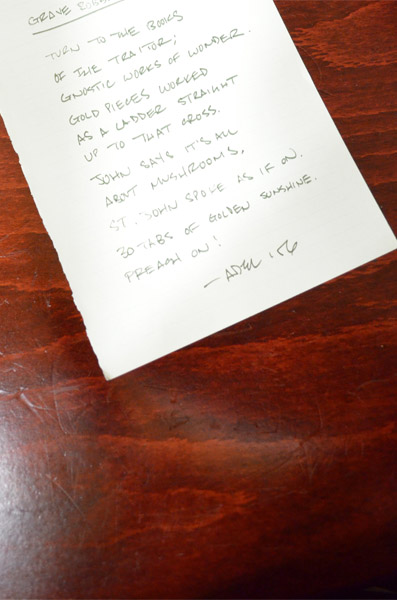 GRAVE
TURN TO THE BOOKS
OF THE TRAITOR;
GNOSTIC WORKS OF WONDER.
GOLD PIECES WORKED
AS A LADDER STRAIGHT
UP TO THAT CROSS.
JOHN SAYS IT'S ALL
ABOUT MUSHROOMS,
ST. JOHN SPOKE AS IF ON.
30 TABS OF GOLDEN SUNSHINE.
PREACH ON!